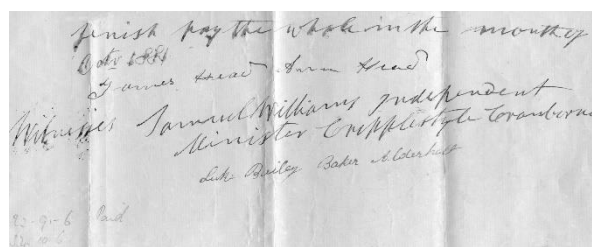 finish pay the whole in the month of
Octr 1881
James Head Ann Head
Witnesses Samuel Williams Independent
Minister Cripplestyle Cranborne
Luk Bailey Baker Alderholt
Paid